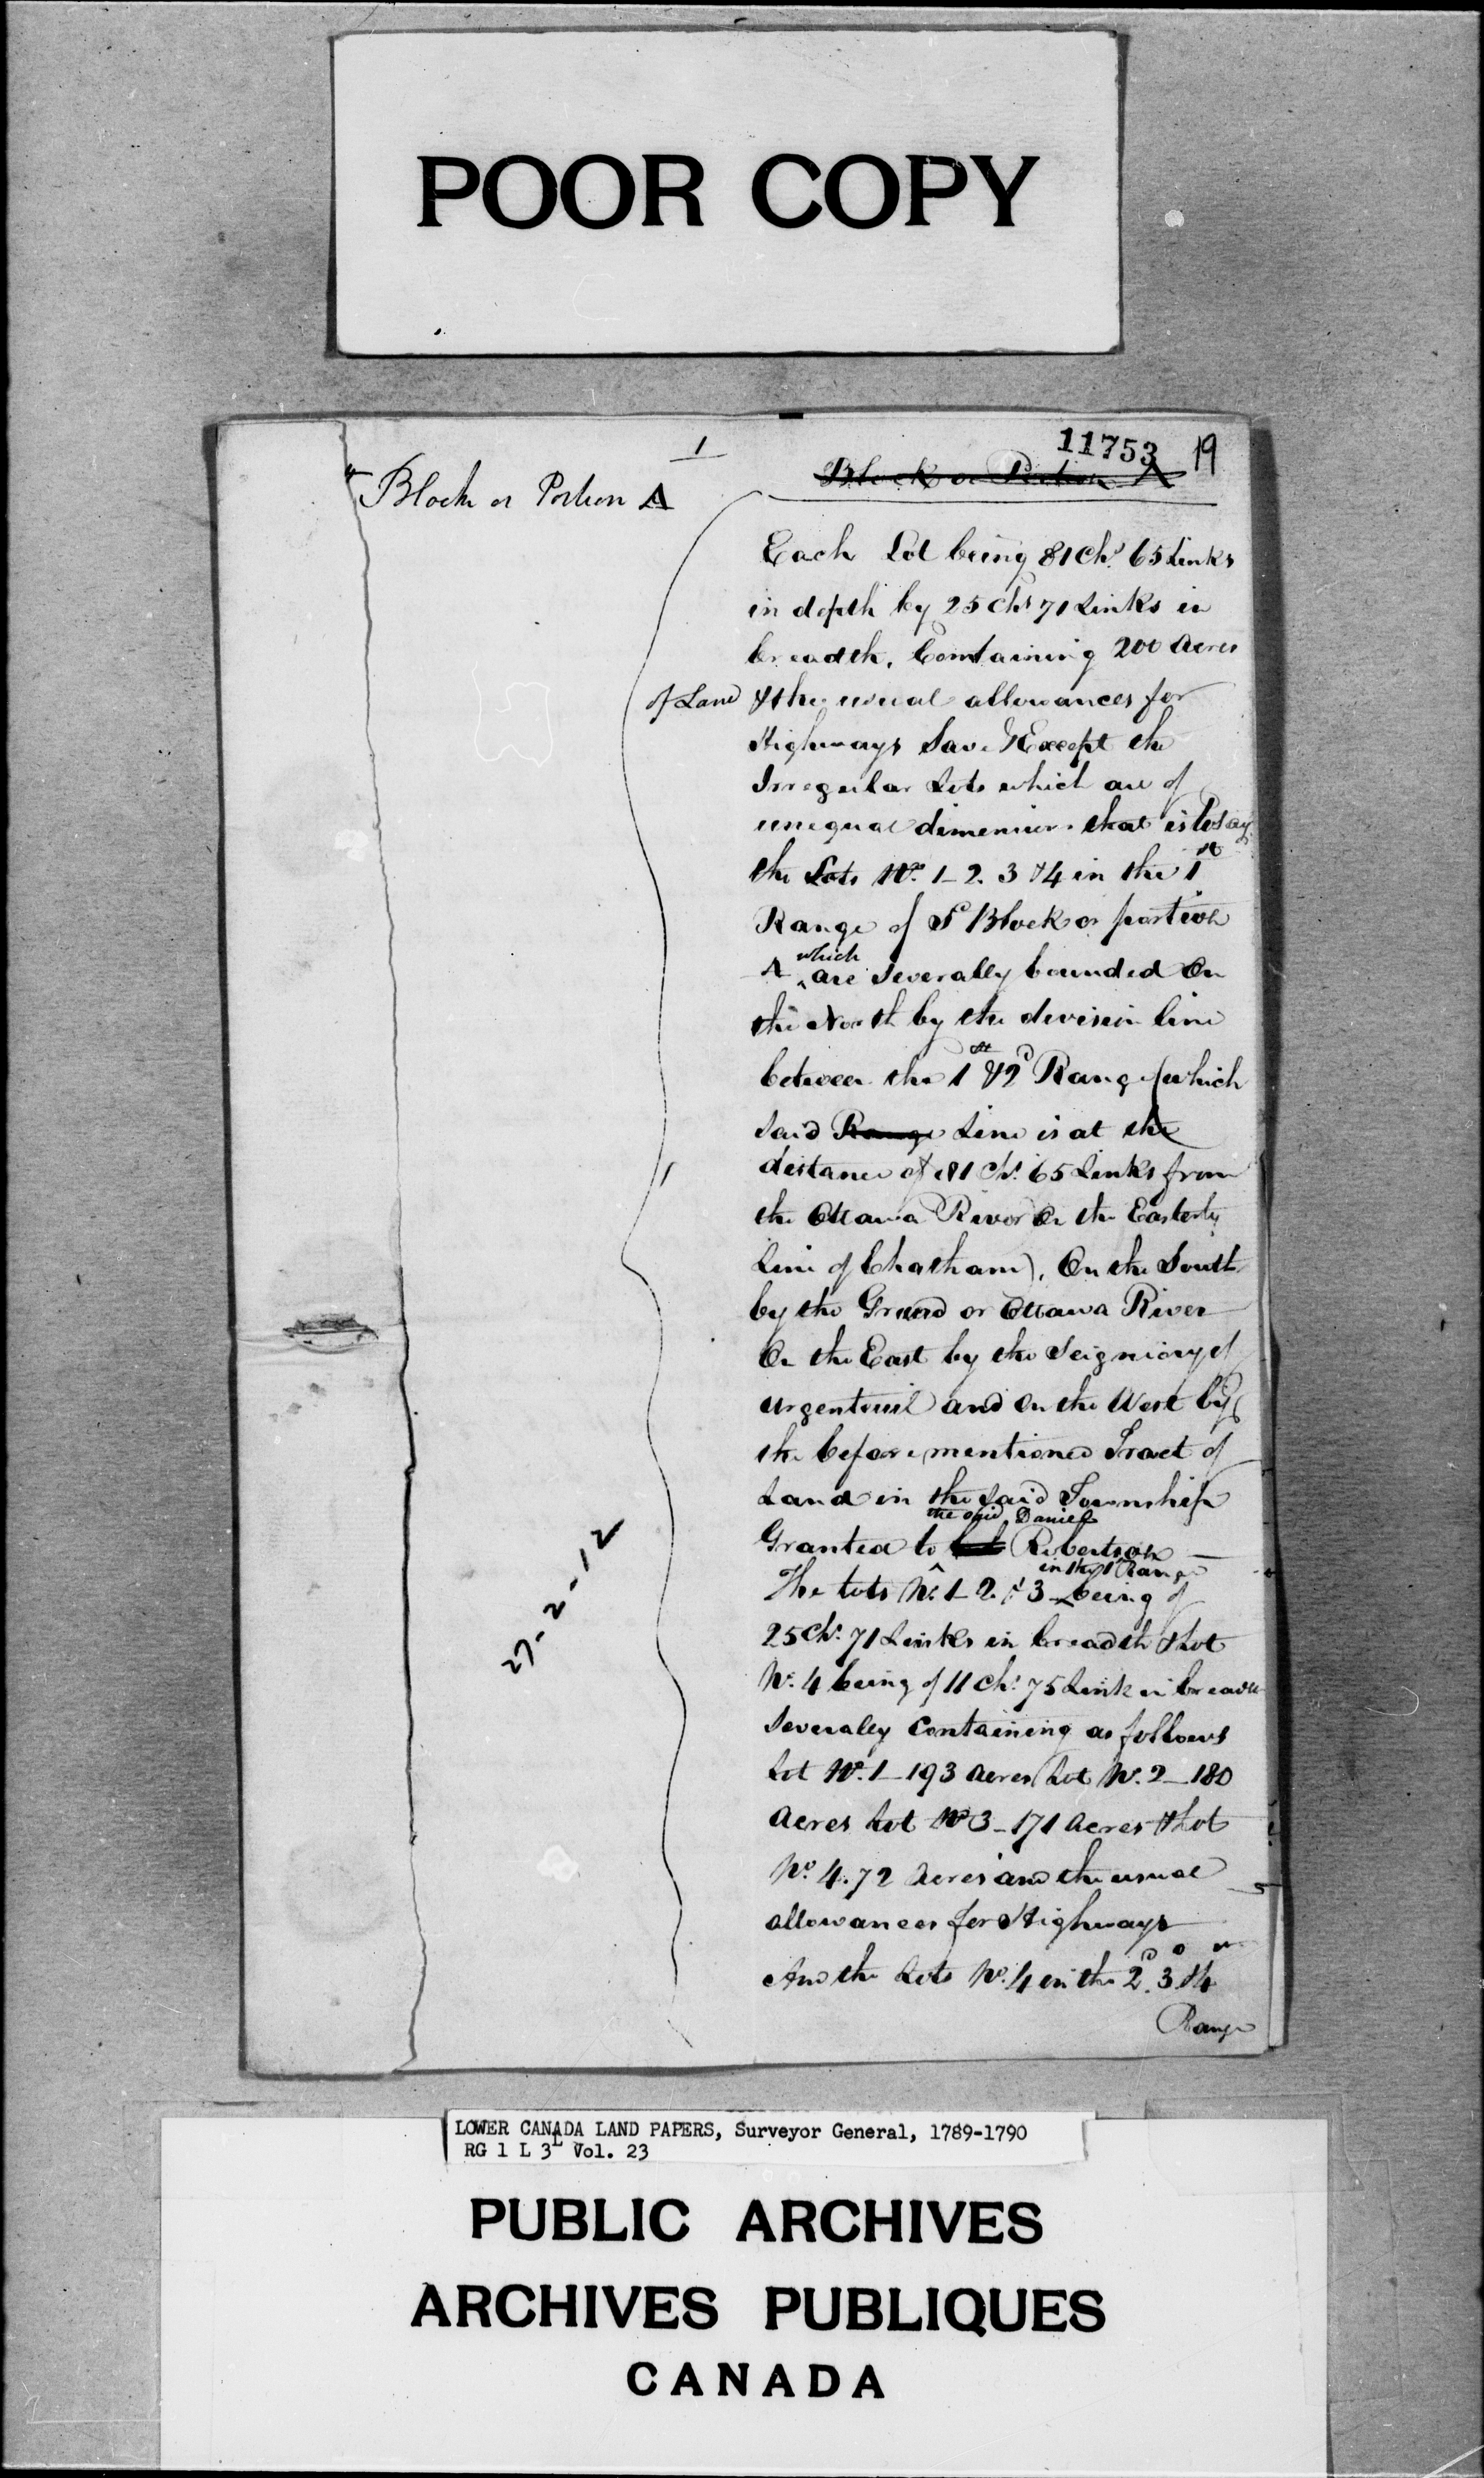 POOR COPY
1
11753 19
Block or Portion A
Block or Portion A
Each Lot being 81 Chs. 65 Links
in depth by 25 Chs 71 Links in
breadth, Containing 200 Acres
of Land & the usual allowances for
Highways Save & Except the
Irregular Lots which are of
unequal dimensions that is to say
the Lots No. 1 - 2. 3 & 4 in the 1st
Range of Sd Block or portion
A which are Severally bounded On
the North by the division line
between the 1st & 2d Range (which
said Range Line is at the
distance of 81 Chs. 65 Links from
the Ottawa River On the Easterly
Line of Chatham). On the South
by the Grand or Ottawa River
On the East by the Seigniory of
Argenteuil and On the West by
the before mentioned Tract of
Land in the said Township
Granted to the said Daniel Robertson —
The Lots No. 1 - 2. & 3 in the 1st Range being of
25 Chs. 71 Links in breadth & Lot
No. 4 being of 11 Chs. 75 Links in breadth
Severally Containing as follows
Lot No. 1 - 193 Acres Lot No. 2 - 180
Acres Lot No 3 - 171 Acres & Lot
No. 4. 72 Acres and the usual
allowances for Highways
And the Lots No. 4 in the 2d. 3d & 4th
Range
27-2-12
LOWER CANADA LAND PAPERS, Surveyor General, 1789-1790
RG 1 L 3L Vol. 23
PUBLIC ARCHIVES
ARCHIVES PUBLIQUES
CANADA